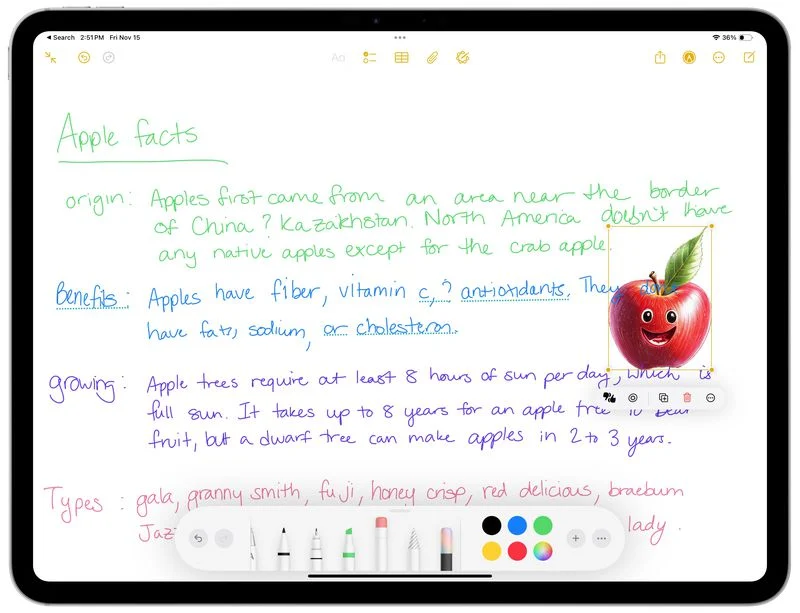 Search 2:51 PM Fri Nov 15
36%
Aa
Apple facts
origin: Apples first came from an area near the border
of China ? Kazakhstan. North America doesn't have
any native apples except for the crab apple.
Benefits: Apples have fiber, vitamin c, ? antioxidants. They don't
have fats, sodium, or cholesteron.
growing: Apple trees require at least 8 hours of sun per day, which is
full sun. It takes up to 8 years for an apple tree to bear
fruit, but a dwarf tree can make apples in 2 to 3 years.
Types: gala, granny smith, fuji, honey crisp, red delicious, braeburn
Jaz lady.